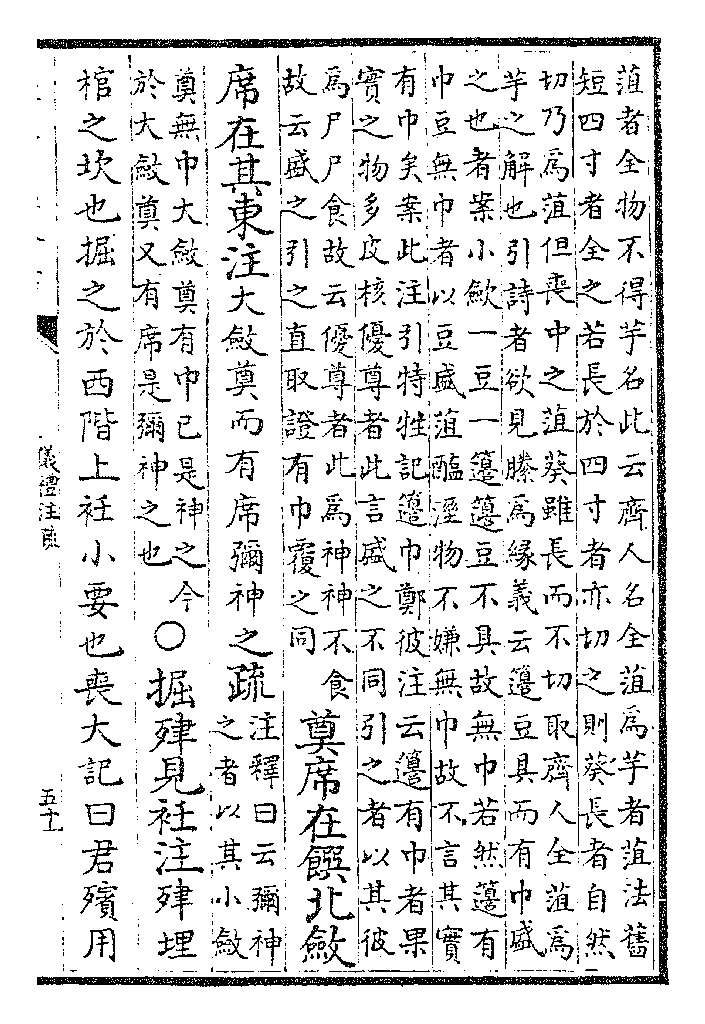 菹者全物不得芋名此云齊人名全菹爲芋者菹法舊
短四寸者全之若長於四寸者亦切之則葵長者自然
切乃爲菹但喪中之菹葵雖長而不切取齊人全菹爲
芋之解也引詩者欲見縢爲緣義云籩豆具而有巾盛
之也者案小斂一豆一籩籩豆不具故無巾若然籩有
巾豆無巾者以豆盛菹醢溼物不嫌無巾故不言其實
有巾矣案此注引特牲記籩巾鄭彼注云籩有巾者果
實之物多皮核優尊者此言盛之不同引之者以其彼
爲尸尸食故云優尊者此爲神神不食
故云盛之引之直取證有巾覆之同
奠席在饌北斂
席在其東注大斂奠而有席彌神之疏
注釋曰云彌神
之者以其小斂
奠無巾大斂奠有巾已是神之今
於大斂奠又有席是彌神之也
○掘肂見衽注肂埋
棺之坎也掘之於西階上衽小要也喪大記曰君殯用
儀禮注疏
五十